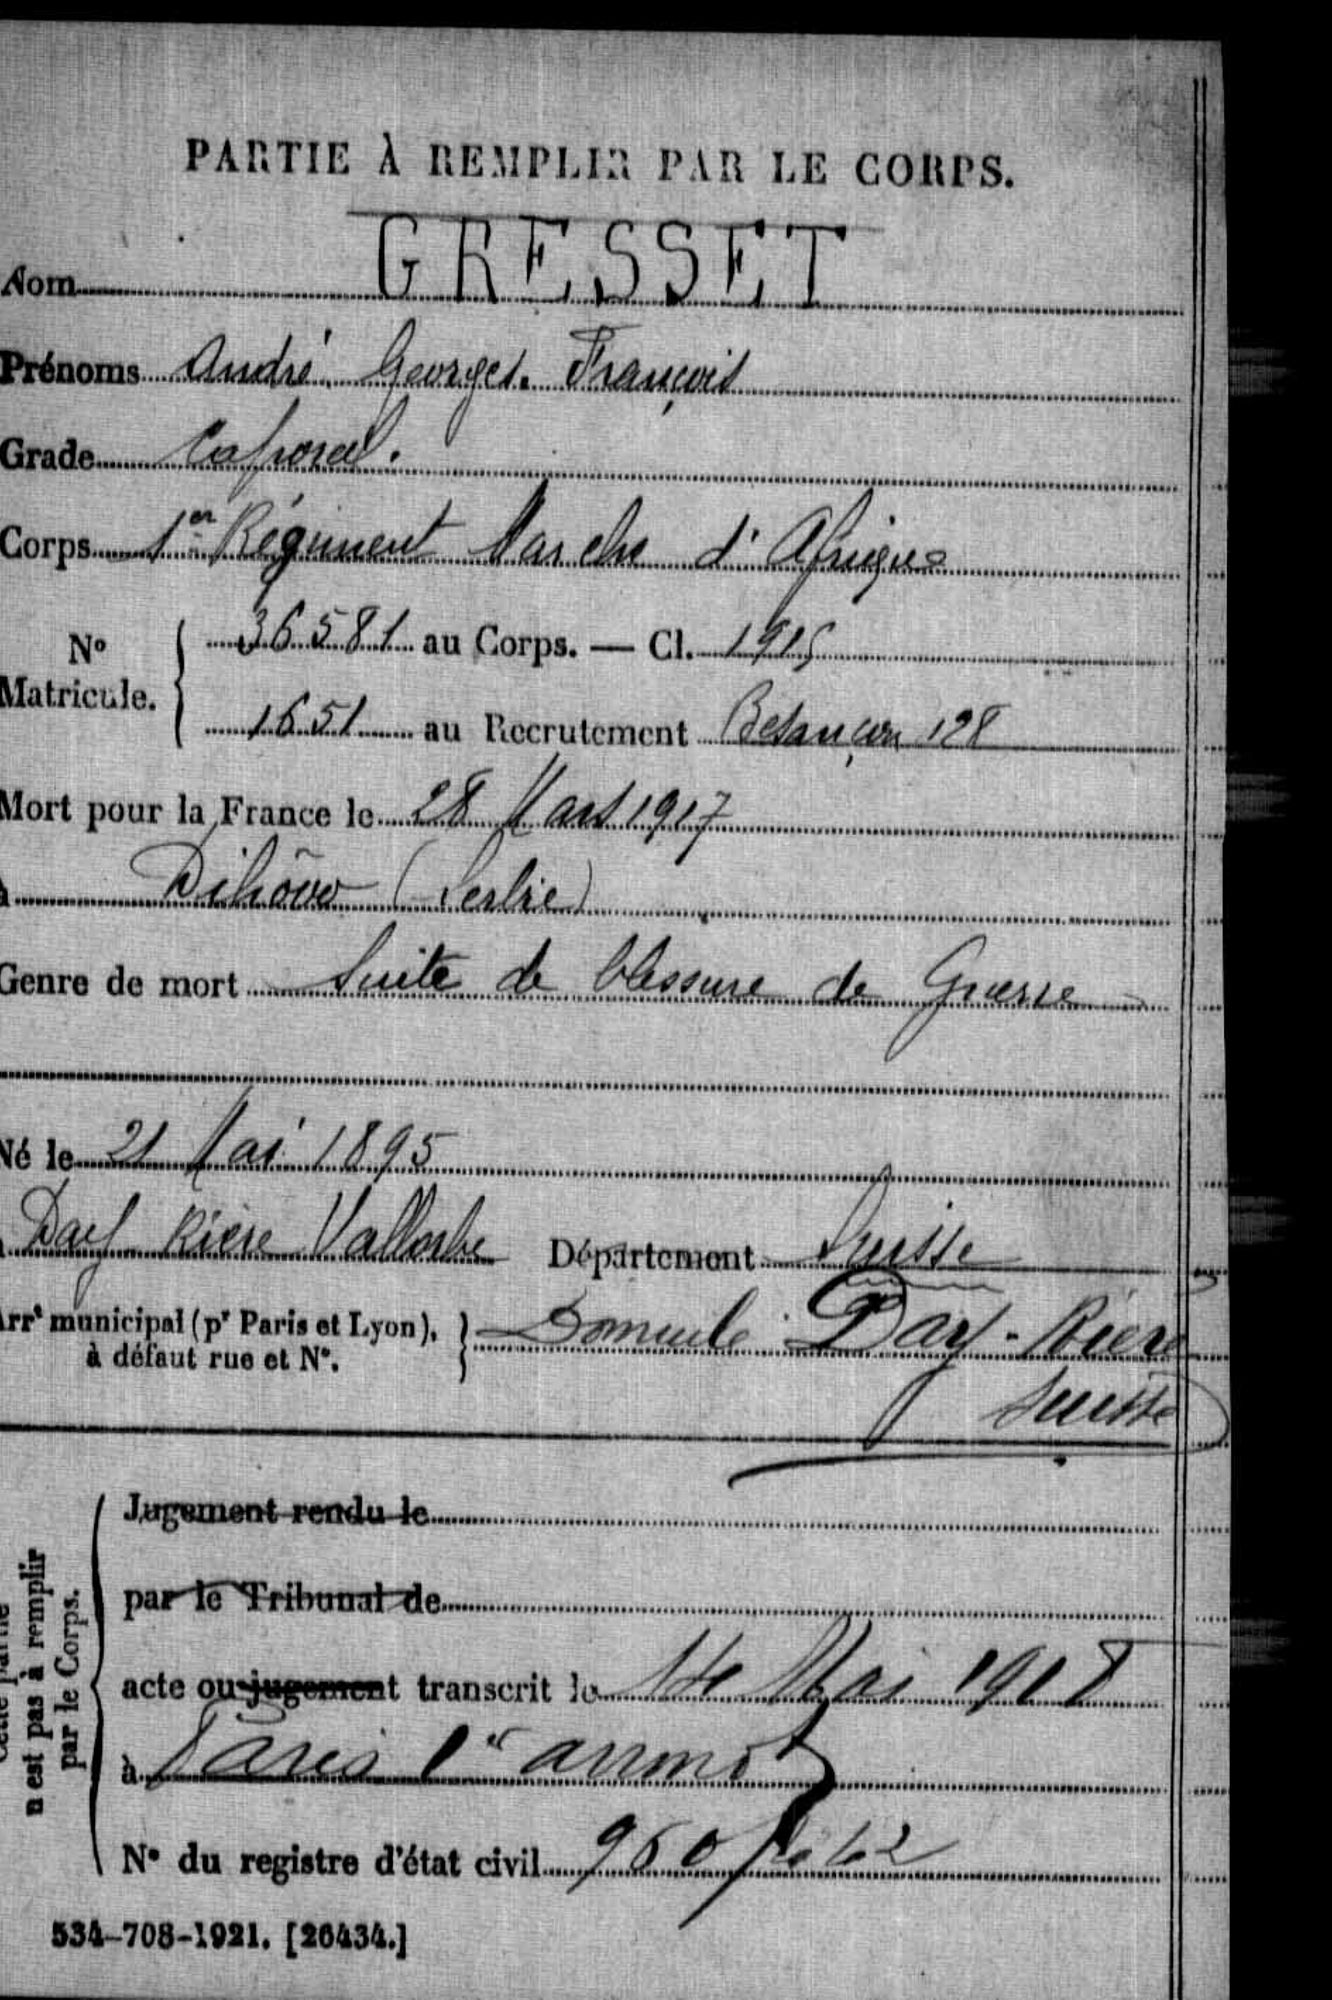 PARTIE À REMPLIR PAR LE CORPS.
Nom GRESSET
Prénoms André Georges. François
Grade Caporal.
Corps 1er Régiment Marche d'Afrique
No Matricule. 36581 au Corps. — Cl. 1915
1651 au Recrutement Besançon 128
Mort pour la France le 28 Mars 1917
à Dihovo (Serbie)
Genre de mort Suite de blessure de Guerre
Né le 21 Mai 1895
à Day Rière Vallorbe Département Suisse
Arrt municipal (pr Paris et Lyon), à défaut rue et No. Domicile Day-Rière
Suisse
Cette partie n'est pas à remplir par le Corps.
Jugement rendu le
par le Tribunal de
acte ou jugement transcrit le Mai 1918
à Paris 1er arrondt
No du registre d'état civil 960
534-708-1921. [26434.]